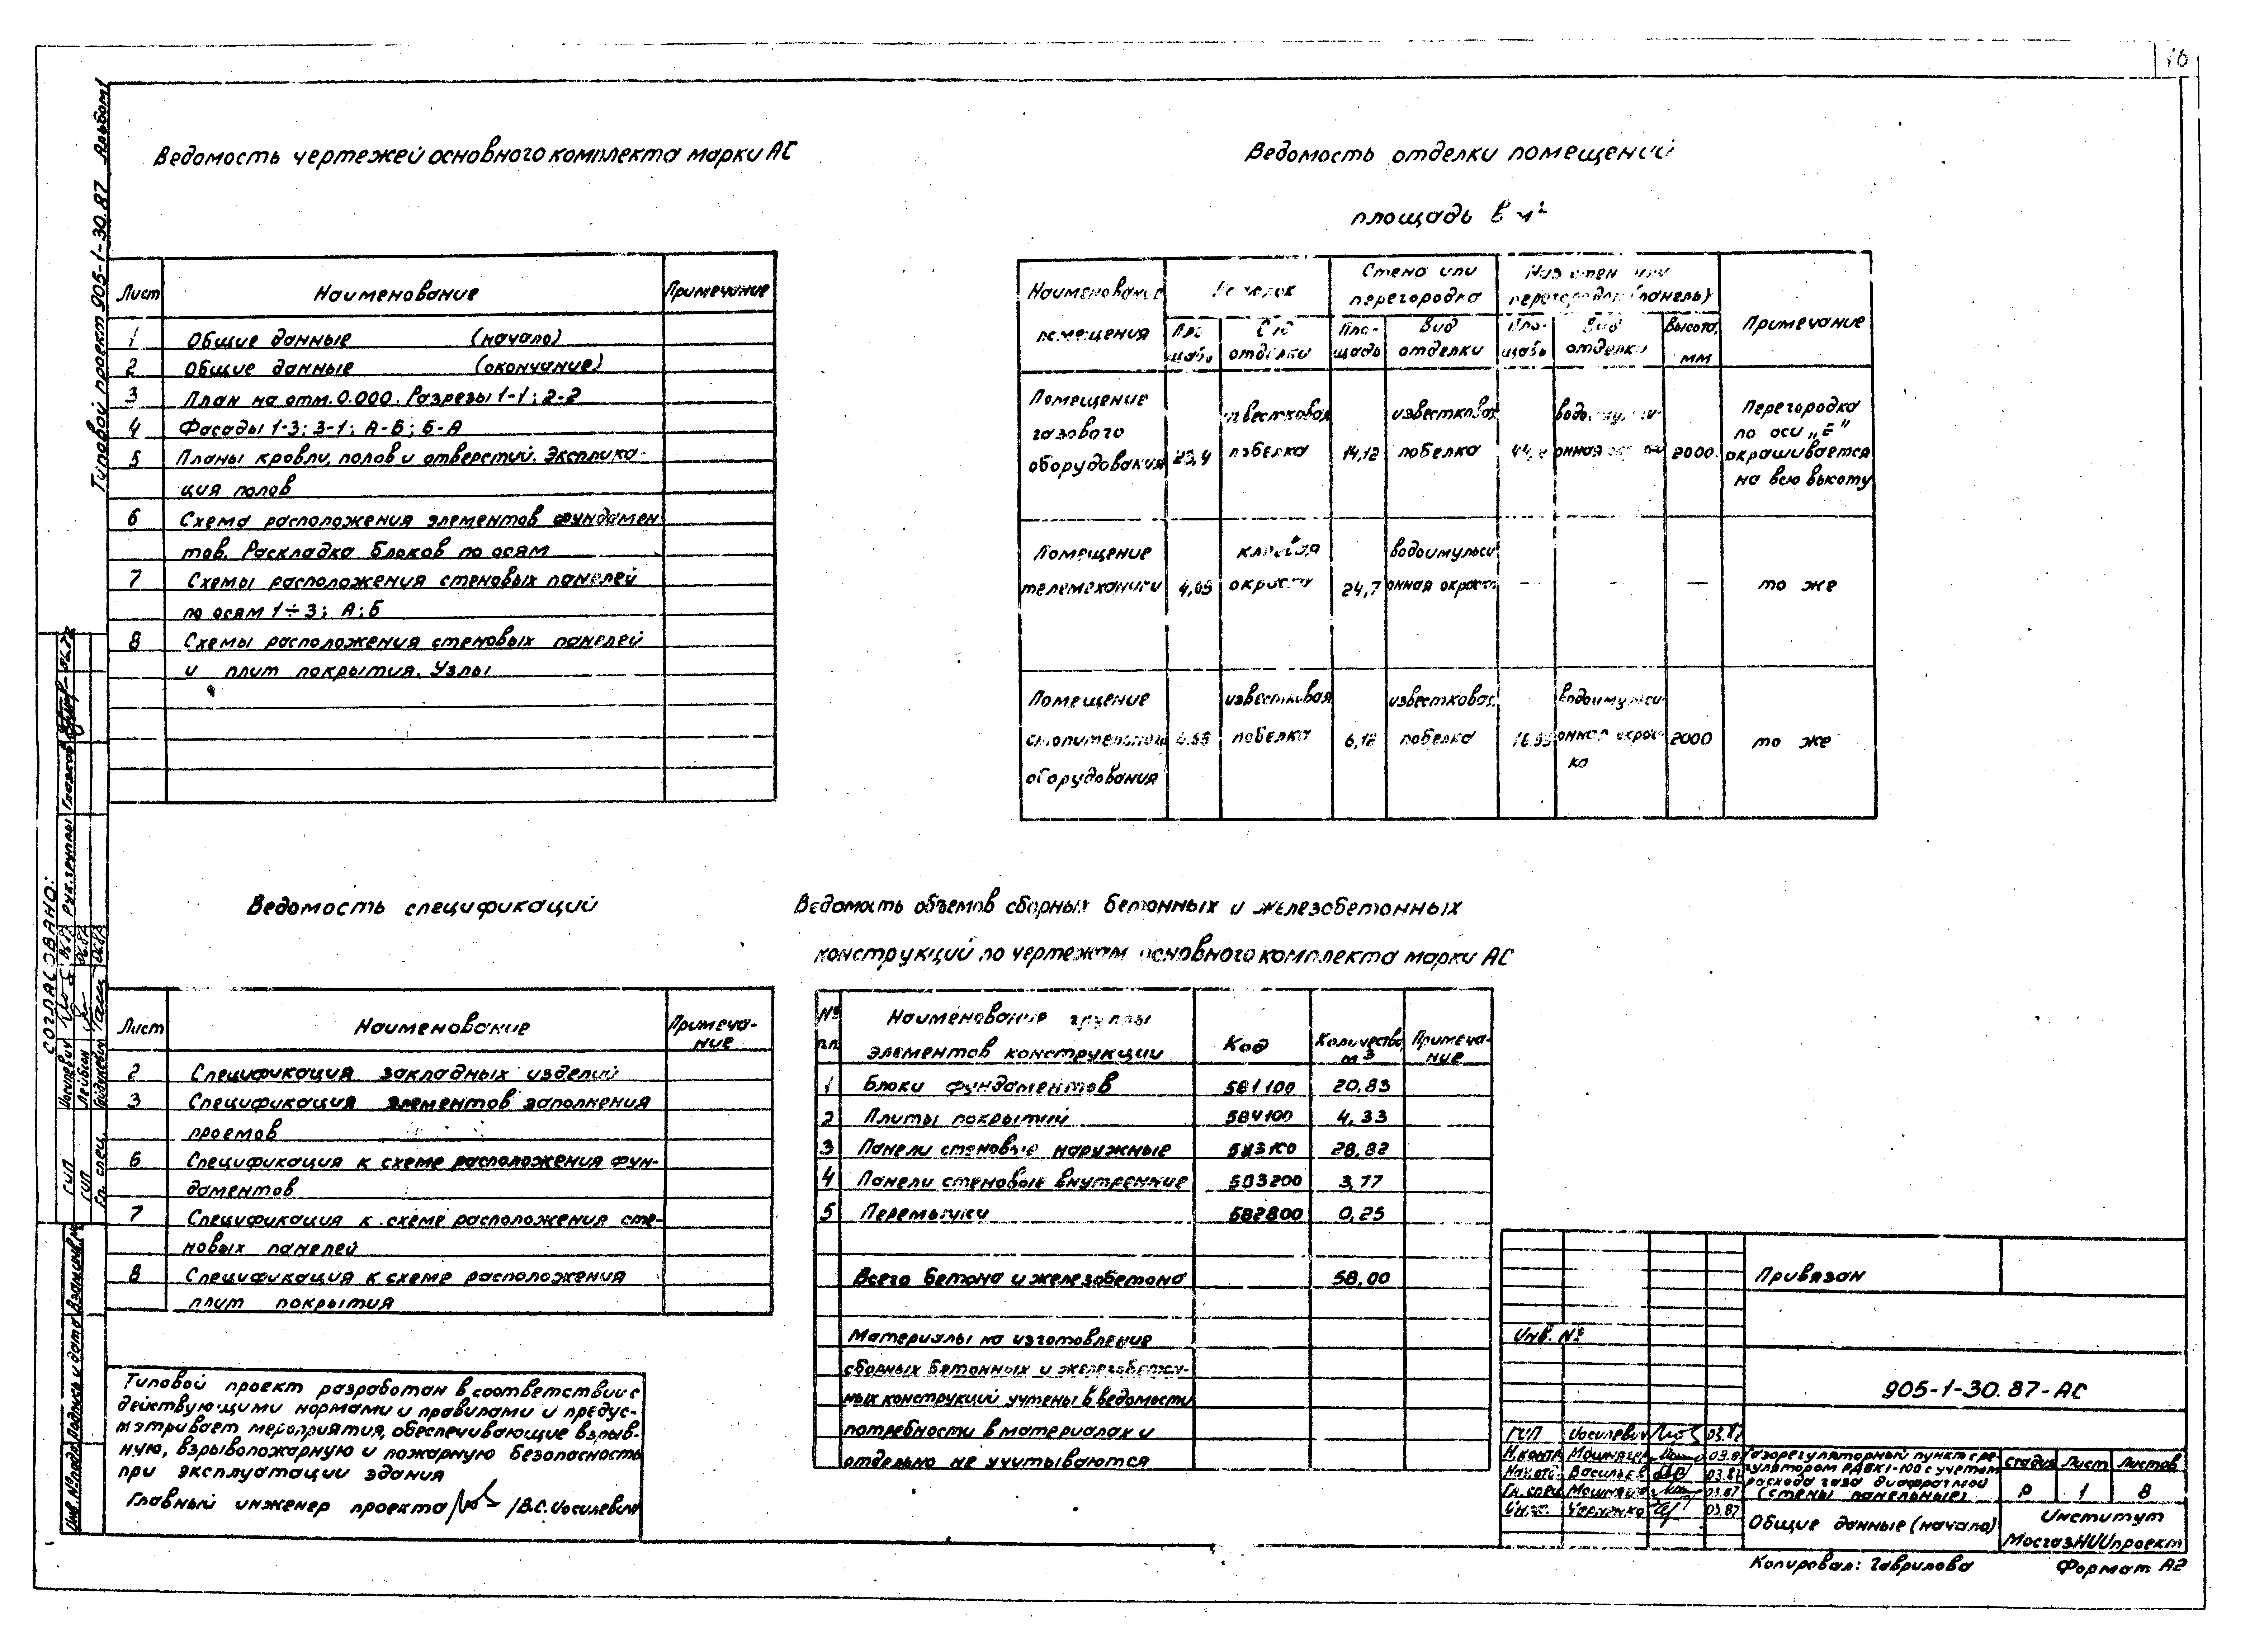 16
Типовой проект 905-1-30.87 Альбом
Ведомость чертежей основного комплекта марки АС
Лист Наименование Примечание
1 Общие данные (начало)
2 Общие данные (окончание)
3 План на отм. 0.000. Разрезы 1-1; 2-2
4 Фасады 1-3; 3-1; А-Б; Б-А
5 Планы кровли, полов и отверстий. Эксплика-
ция полов
6 Схема расположения элементов фундамен
тов. Раскладка блоков по осям
7 Схемы расположения стеновых панелей
по осям 1÷3; А; Б
8 Схемы расположения стеновых панелей
и плит покрытия. Узлы
Ведомость отделки помещений
площадь в м²
Наименование помещения
Потолок
Стена или перегородка
Низ стен или перегородок (панель)
Примечание
Пло щадь Вид отделки Пло- щадь Вид отделки Пло- щадь Вид отделки Высота, мм
Помещение газового оборудования 23,4 известковая побелка 14,12 известковая побелка 2000 Перегородка по оси „Б" окрашивается на всю высоту
Помещение телемеханики 4,05 клеевая окраска 24,7 водоимульси онная окраска — — — то же
Помещение отопительного оборудования известковая побелка 6,12 известковая побелка водоимульси онная окрас ка 2000 то же
Ведомость спецификаций
Лист Наименование Примеча-
ние
2 Спецификация закладных изделий
3 Спецификация элементов заполнения
проемов
6 Спецификация к схеме расположения фун-
даментов
7 Спецификация к схеме расположения сте-
новых панелей
8 Спецификация к схеме расположения
плит покрытия
Ведомость объемов сборных бетонных и железобетонных
конструкций по чертежам основного комплекта марки АС
№ пп Наименование группы элементов конструкции Код Количество, м3 Примеча- ние
1 Блоки фундаментов 581100 20,83
2 Плиты покрытий 584100 4,33
3 Панели стеновые наружные 583100 28,82
4 Панели стеновые внутренние 583200 3,77
5 Перемычки 582800 0,25
Всего бетона и железобетона 58,00
Материалы на изготовление
сборных бетонных и железобетон-
ных конструкций учтены в ведомости
потребности в материалах и
отдельно не учитываются
Типовой проект разработан в соответствии с
действующими нормами и правилами и предус-
матривает мероприятия, обеспечивающие взрыв-
ную, взрывопожарную и пожарную безопасность
при эксплуатации здания
Главный инженер проекта /В.С. Иосилевич
Привязан
Инв. №
905-1-30.87-АС
ГИП Иосилевич 03.87
Н.контр 03.87
Нач.отд. Васильев 03.87
Гл. спец 03.87
Инж. 03.87
Газорегуляторный пункт с ре-
гулятором РДБК1-100 с учетом
расхода газа диафрагмой
(стены панельные)
Стадия Лист Листов
Р 1 8
Общие данные (начало)
Институт
МосгазНИИпроект
Копировал: Гаврилова Формат А2
СОГЛАСОВАНО:
Рук. группы
ГИП Иосилевич
ГИП Лейбман
Гл. спец.
Инв. № подл. Подпись и дата Взам. инв. №